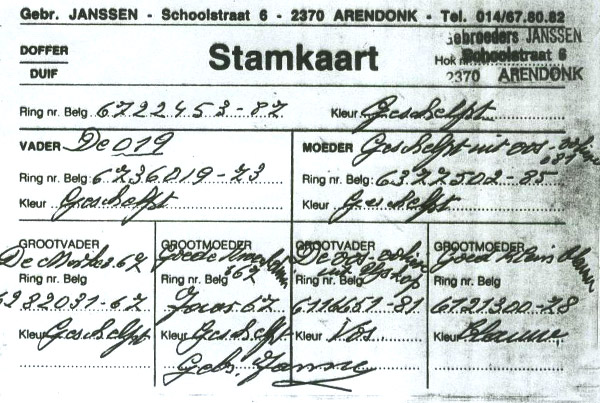 Gebr. JANSSEN - Schoolstraat 6 - 2370 ARENDONK - Tel. 014/67.80.82
DOFFER
DUIF
Stamkaart
Gebroeders JANSSEN
Hok
Schoolstraat 6
2370 ARENDONK
Ring nr. Belg 6722453-87 Kleur Geschelpt
VADER De 019
MOEDER Geschelpt uit
Ring nr. Belg: 6736019-73
Ring nr. Belg: 6377502-85
Kleur Geschelpt
Kleur Geschelpt
GROOTVADER
De 67
Ring nr. Belg
6282031-67
Kleur Geschelpt
GROOTMOEDER
Goede
Ring nr. Belg
Jaar 67
Kleur Geschelpt
Gebr. Janssen
GROOTVADER
De
Ring nr. Belg
6116651-81
Kleur Vos
GROOTMOEDER
Goed klein
Ring nr. Belg
6121300-78
Kleur Blauw